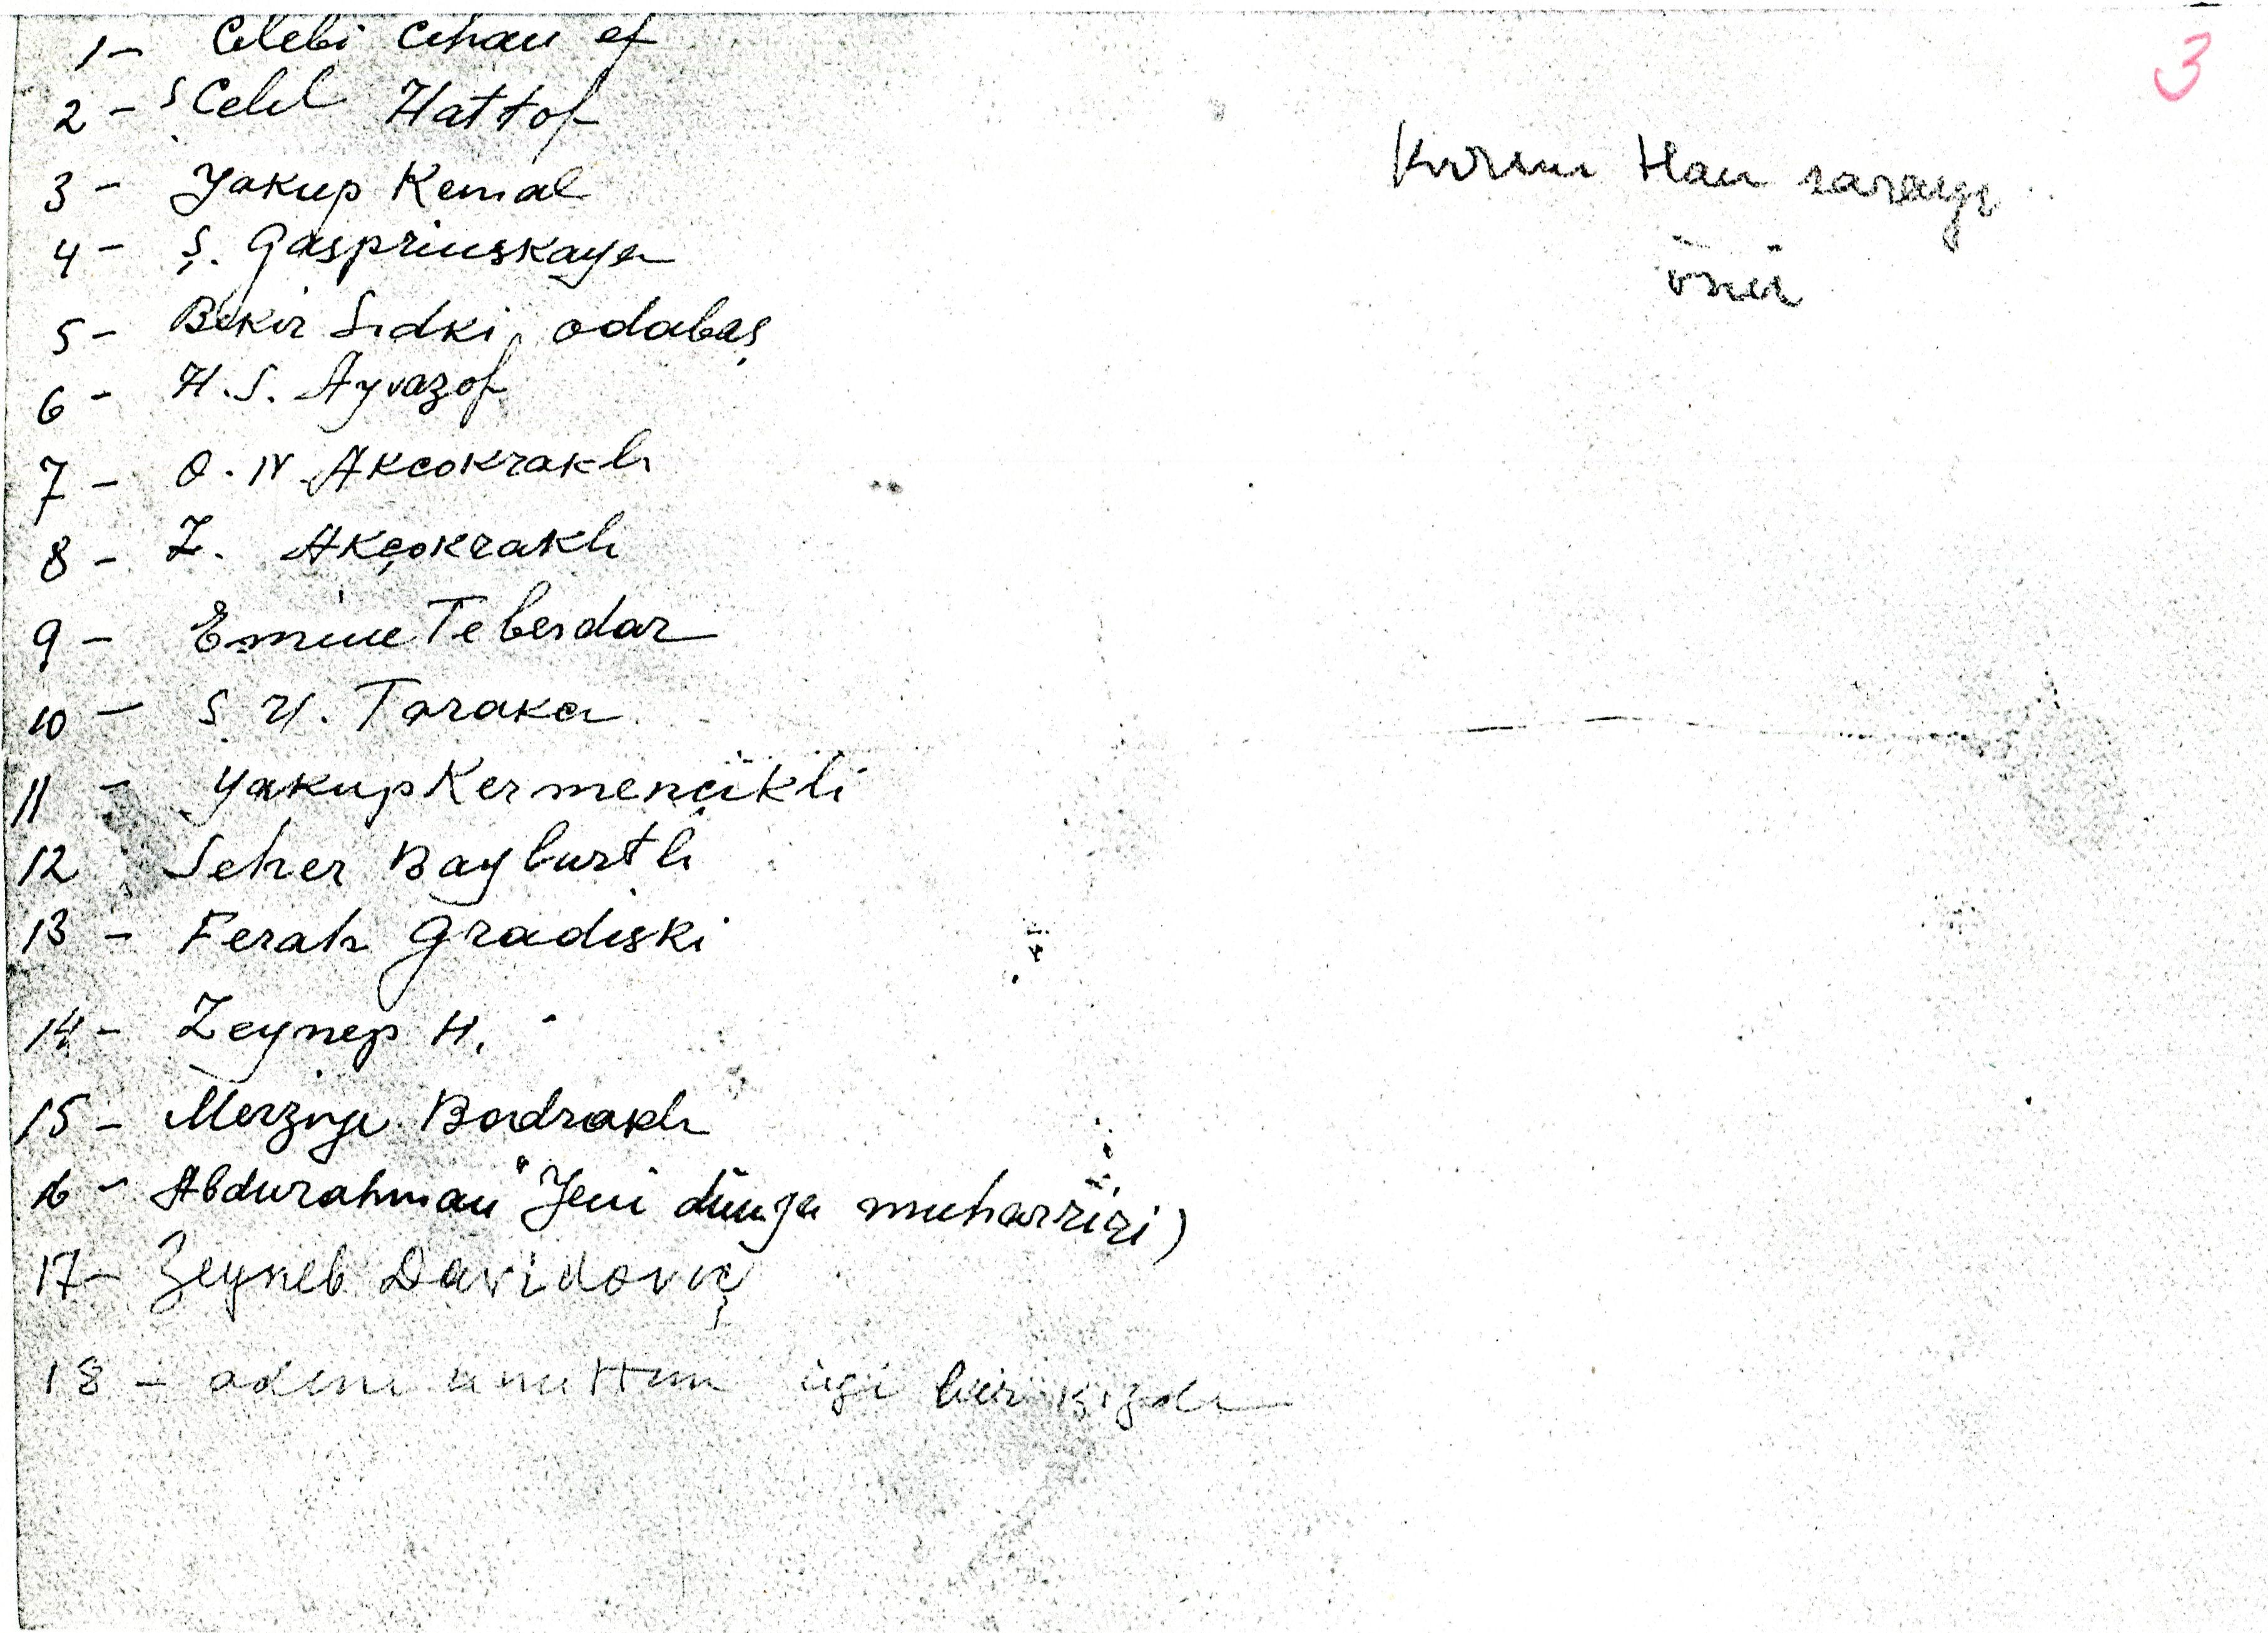 1- Celebi Cihan ef
2- S Celil Hattof
3- Yakup Kemal
4- Ş. Gasprinskaya
5- Bekir Sıdkı, odabaş
6- H. S. Ayvazof
7- O. N. Akcokraklı
8- Z. Akçokraklı
9- Emine Teberdar
10- S H. Taraka
11- Yakup Kermençikli
12 Seher Bayburtlı
13- Ferah Gradiski
14- Zeynep H.
15- Merziye Bodraklı
16- Abdurahman "Yeni dünya muharriri)
17- Zeyneb Davidoviç
18- adını unuttum iyi bir kızdı
3
Kırım Han sarayı
önü